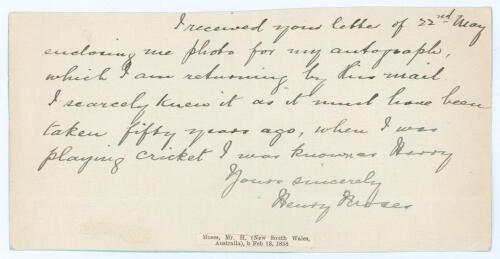 I received your letter of 22nd May
enclosing me photo for my autograph,
which I am returning by this mail
I scarcely knew it as it must have been
taken fifty years ago, when I was
playing cricket I was known as Harry
Yours sincerely
Henry Moses
Moses, Mr. H. (New South Wales,
Australia), b Feb 13, 1858